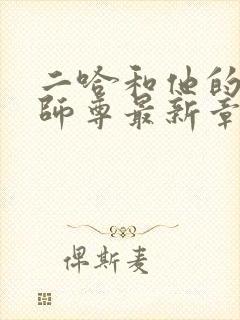 二哈和他的
師尊最新章
俾斯麦